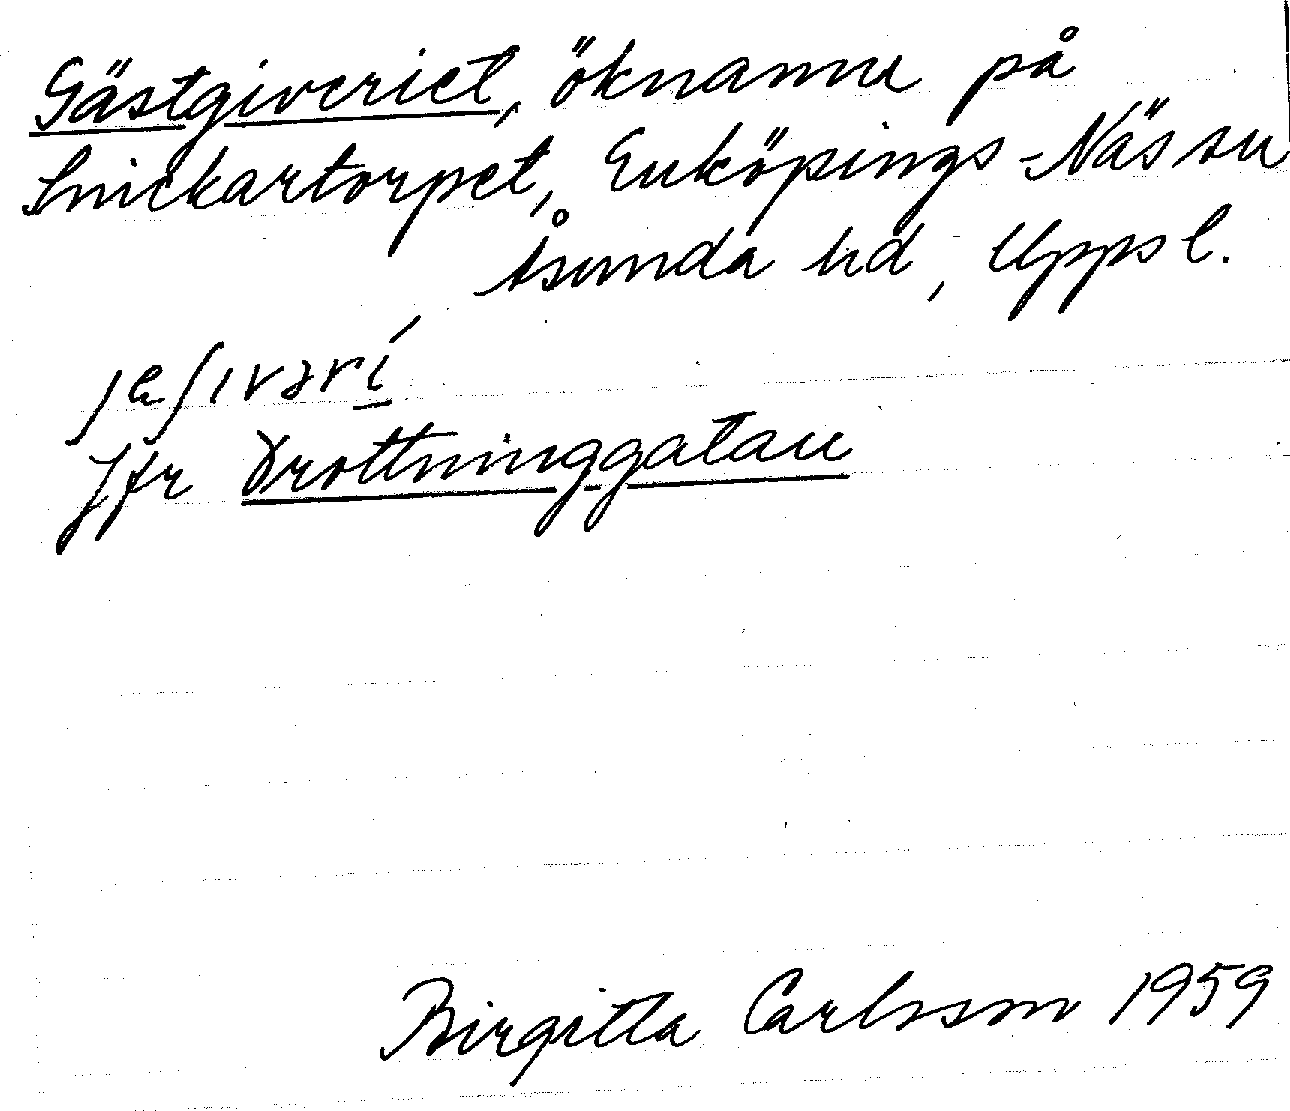 Gästgiveriet, öknamn på
Snickartorpet, Enköpings-Näs sn
Åsunda hd, Uppsl.
Jfr Drottninggatan
Birgitta Carlsson 1959